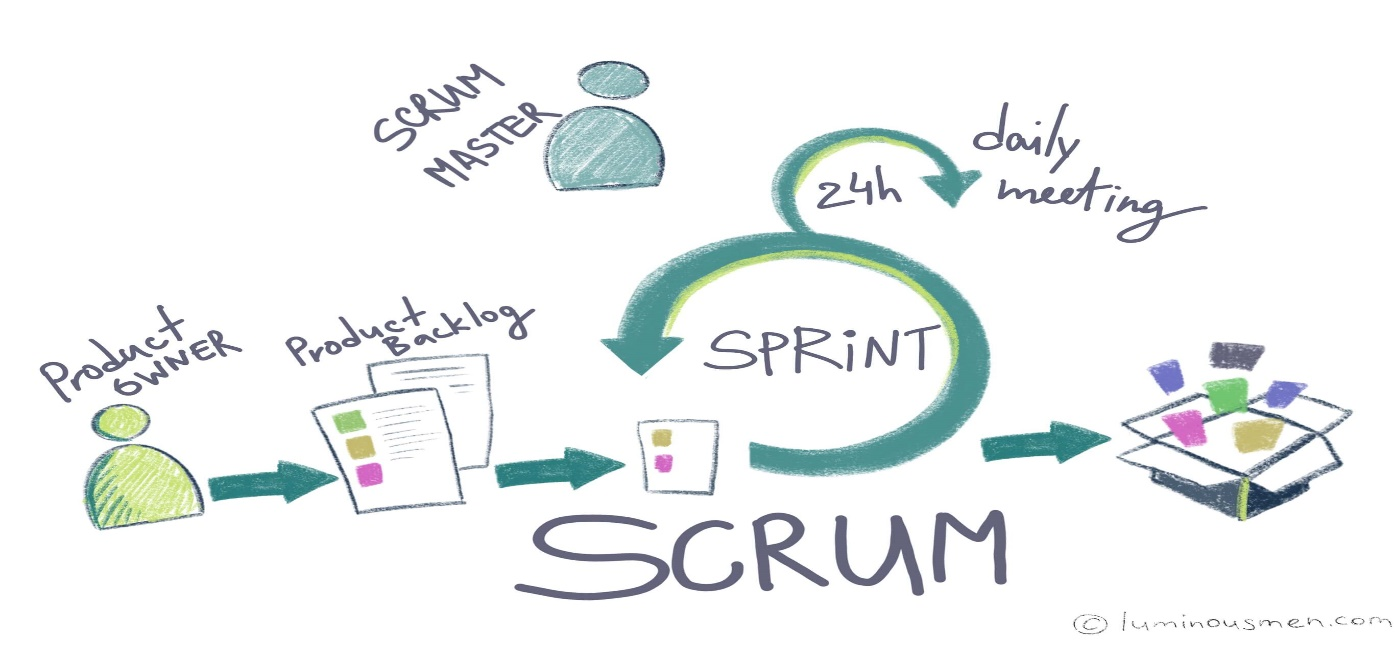 SCRUM
MASTER
daily
meeting
24h
Product
OWNER
Product
Backlog
SPRiNT
SCRUM
© luminousmen.com